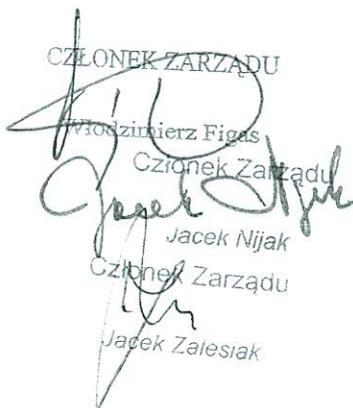 CZŁONEK ZARZĄDU
Włodzimierz Figas
Członek Zarządu
Jacek Nijak
Jacek Nijak
Członek Zarządu
Jacek Zalesiak